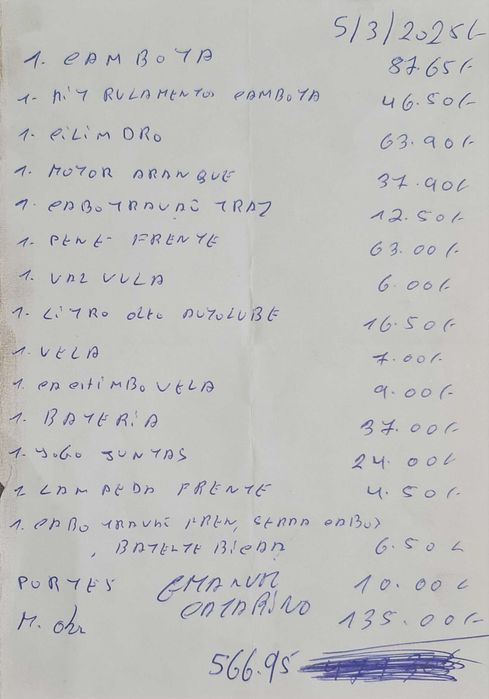 5/3/2025
1. CAMBOTA 87.65
1- KIT RULAMENTOS CAMBOTA 46.50
1. CILIMDRO 63.90
1. MOTOR ARANQUE 37.90
1. CABO TRAVÃO TRAZ 12.50
1. PENE- FRENTE 63.00
1. VALVULA 6.00
1. LITRO OLEO AUTOLUBE 16.50
1. VELA 7.00
1. CACHIMBO VELA 9.00
1. BATERIA 37.00
1. JOGO JUNTAS 24.00
1 LAMPEDA FRENTE 4.50
1. CABO TRAVÃO FREN, SERRA CABOS
, BATENTE 6.50
PORTES EMANUEL 10.00
M. obr CATARINO 135.00
566.95